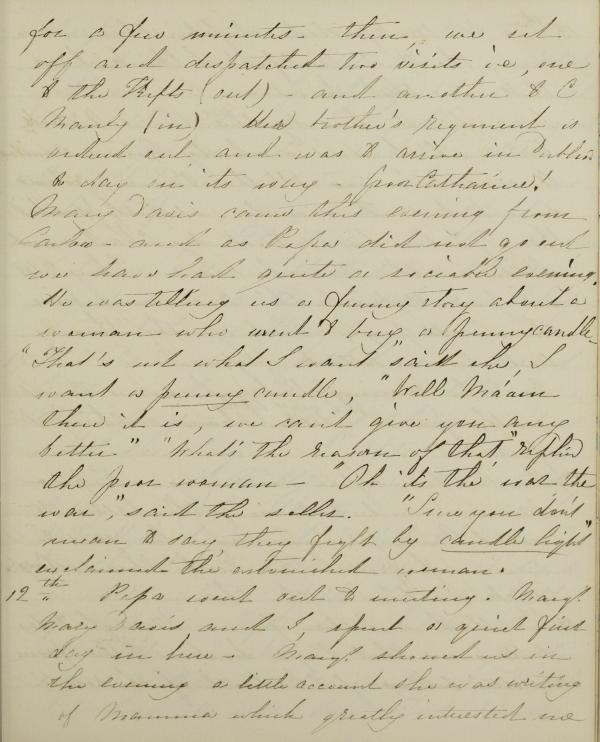 for a few minutes - then we set
off and dispatched two visits i.e, one
to the Thefts (out) - and another to C
Manly (in) Her brother's regiment is
ordered out and was to arrive in Dublin
to day on its way - poor Catharine!
Mary Davis came this evening from
Carlow - and as Papa did not go out
we have had quite a sociable evening.
He was telling us a funny story about a
woman who went to buy a penny candle -
"That's not what I want" said she, I
want a penny candle, "Well Ma'am
there it is, we can't give you any
better" "What's the reason of that" replied
the poor woman - "Oh its the war the
war", said the seller. "Sure you don't
mean to say they fight by candle light"
exclaimed the astonished woman.
12th Papa went out to meeting. Margt.
Mary Davis and I, spent a quiet first
day in here - Margt. showed us in
the evening a little account she was writing
of Mamma which greatly interested me